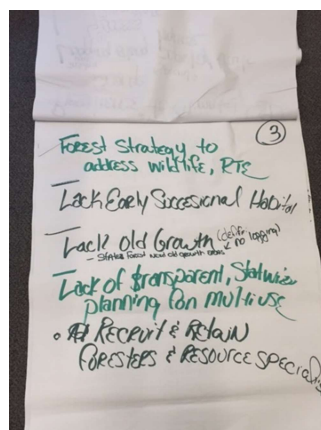 ③
Forest Strategy to
address wildlife, RTE
Lack Early Succesional Habitat
Lack Old Growth (define
no logging)
- States Forest New old growth areas
Lack of transparent, Statwide
planning for multiuse
• Recruit & Retain
Foresters & Resource Specialis